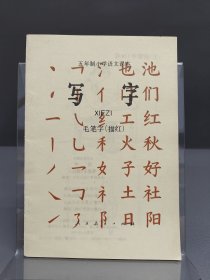 五年制小学语文课本
写字
XIEZI
毛笔字(描红)
氵也池
亻门们
纟工红
禾火秋
女子好
礻土社
阝日阳